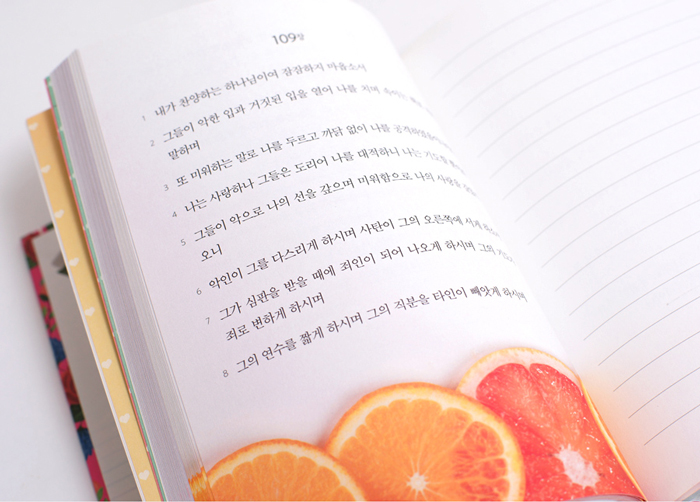 109장
1 내가 찬양하는 하나님이여 잠잠하지 마옵소서
2 그들이 악한 입과 거짓된 입을 열어 나를 치며 속이는
말하며
3 또 미워하는 말로 나를 두르고 까닭 없이 나를
4 나는 사랑하나 그들은 도리어 나를 대적하니 나는 기도
5 그들이 악으로 나의 선을 갚으며 미워함으로 나의 사랑을
오니
6 악인이 그를 다스리게 하시며 사탄이 그의 오른쪽에 서게
7 그가 심판을 받을 때에 죄인이 되어 나오게 하시며 그의
죄로 변하게 하시며
8 그의 연수를 짧게 하시며 그의 직분을 타인이 빼앗게 하시며